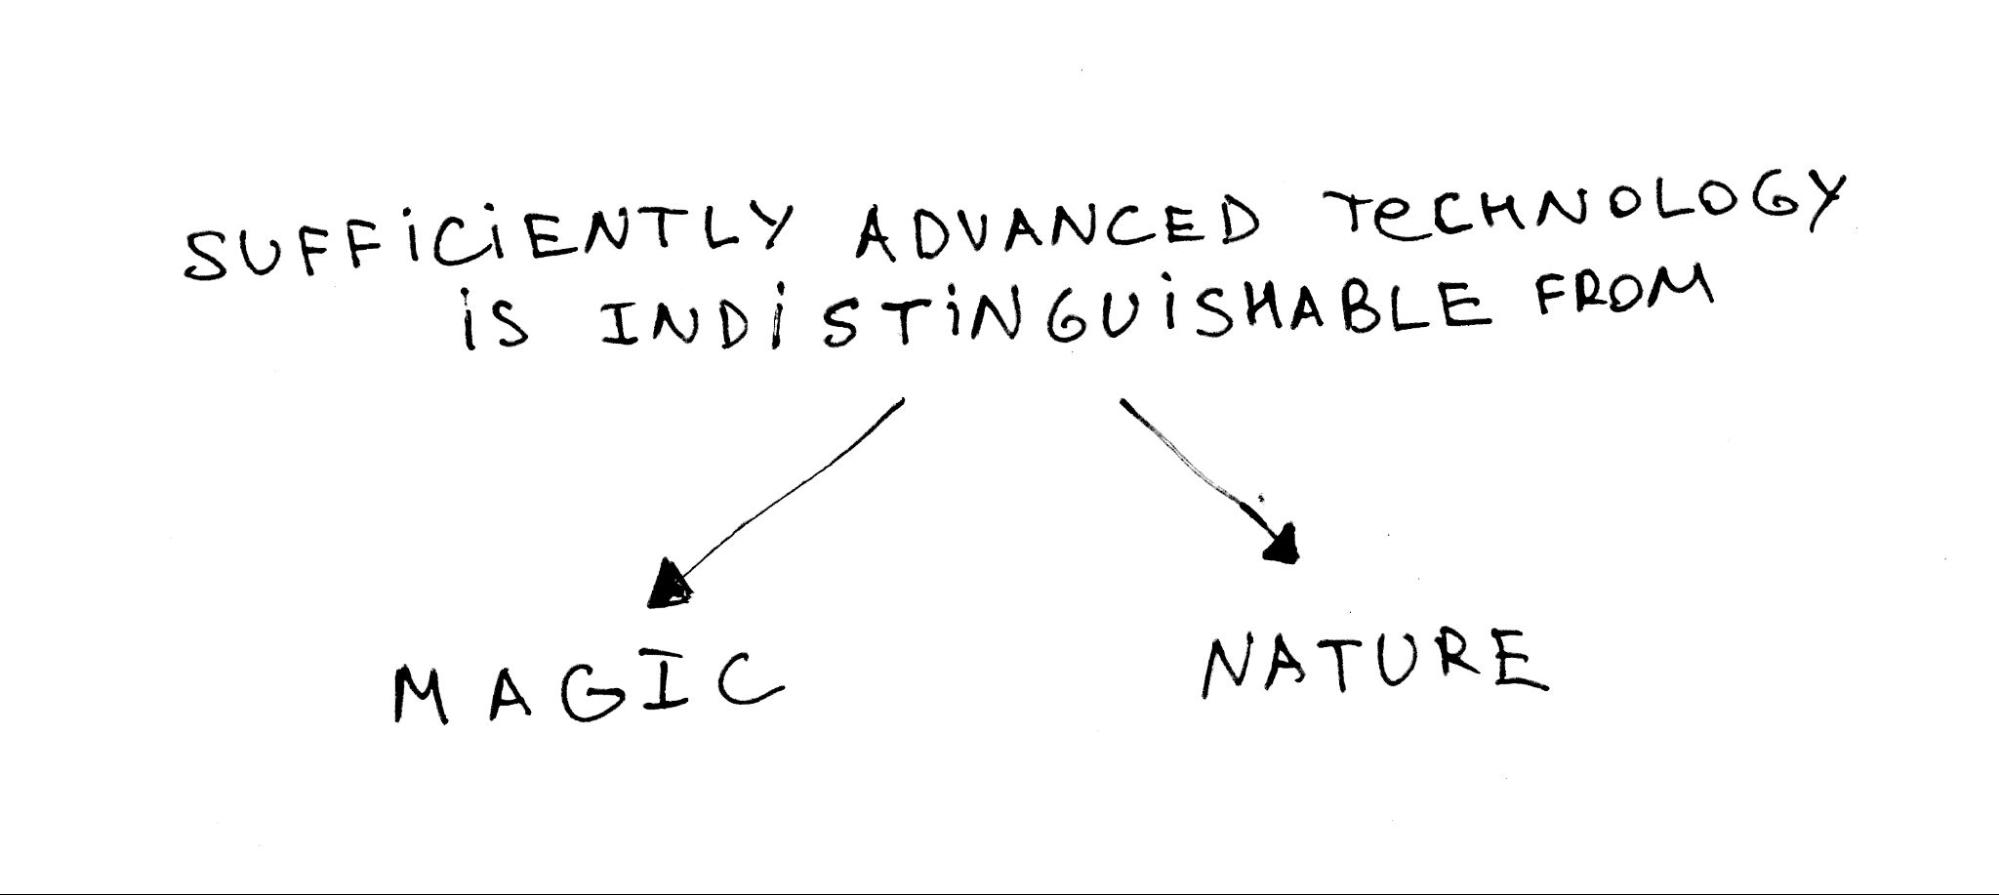 SUFFiCiENTLY ADVANCED TeCHNOLOGY
iS INDiSTiNGUiSHABLE FROM
MAGIC
NATURE